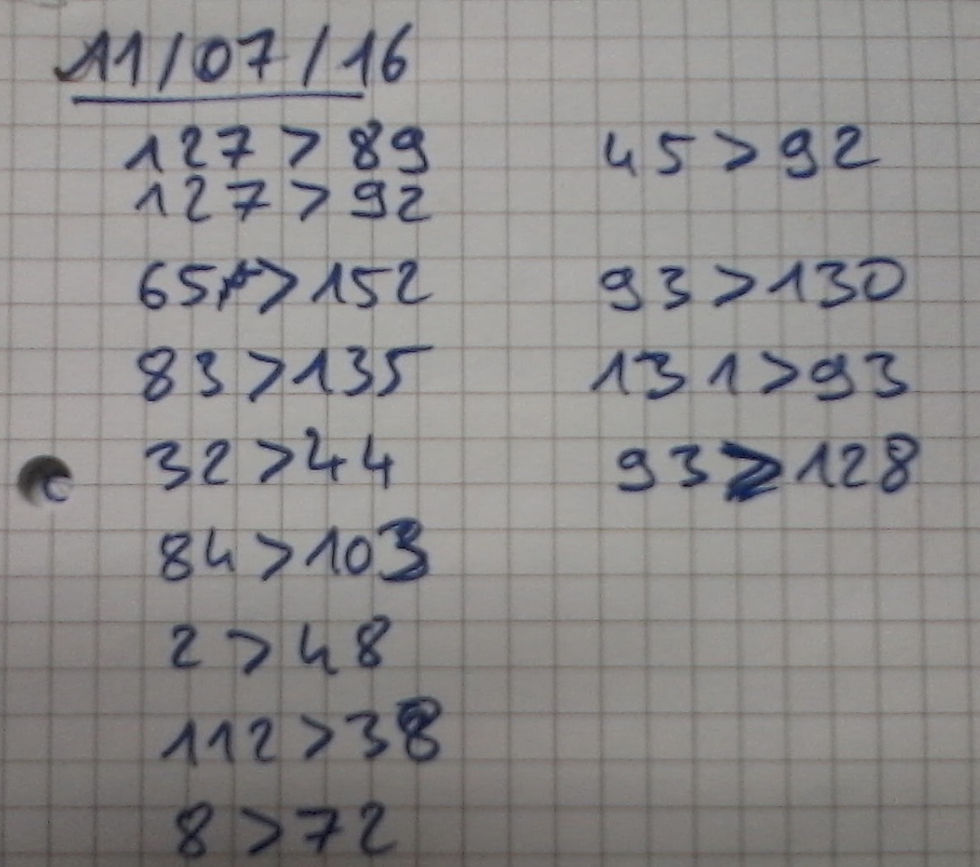 11/07/16
127 > 89
127 > 92
65 > 152
83 > 135
32 > 44
84 > 103
2 > 48
112 > 38
8 > 72
45 > 92
93 > 130
131 > 93
93 > 128